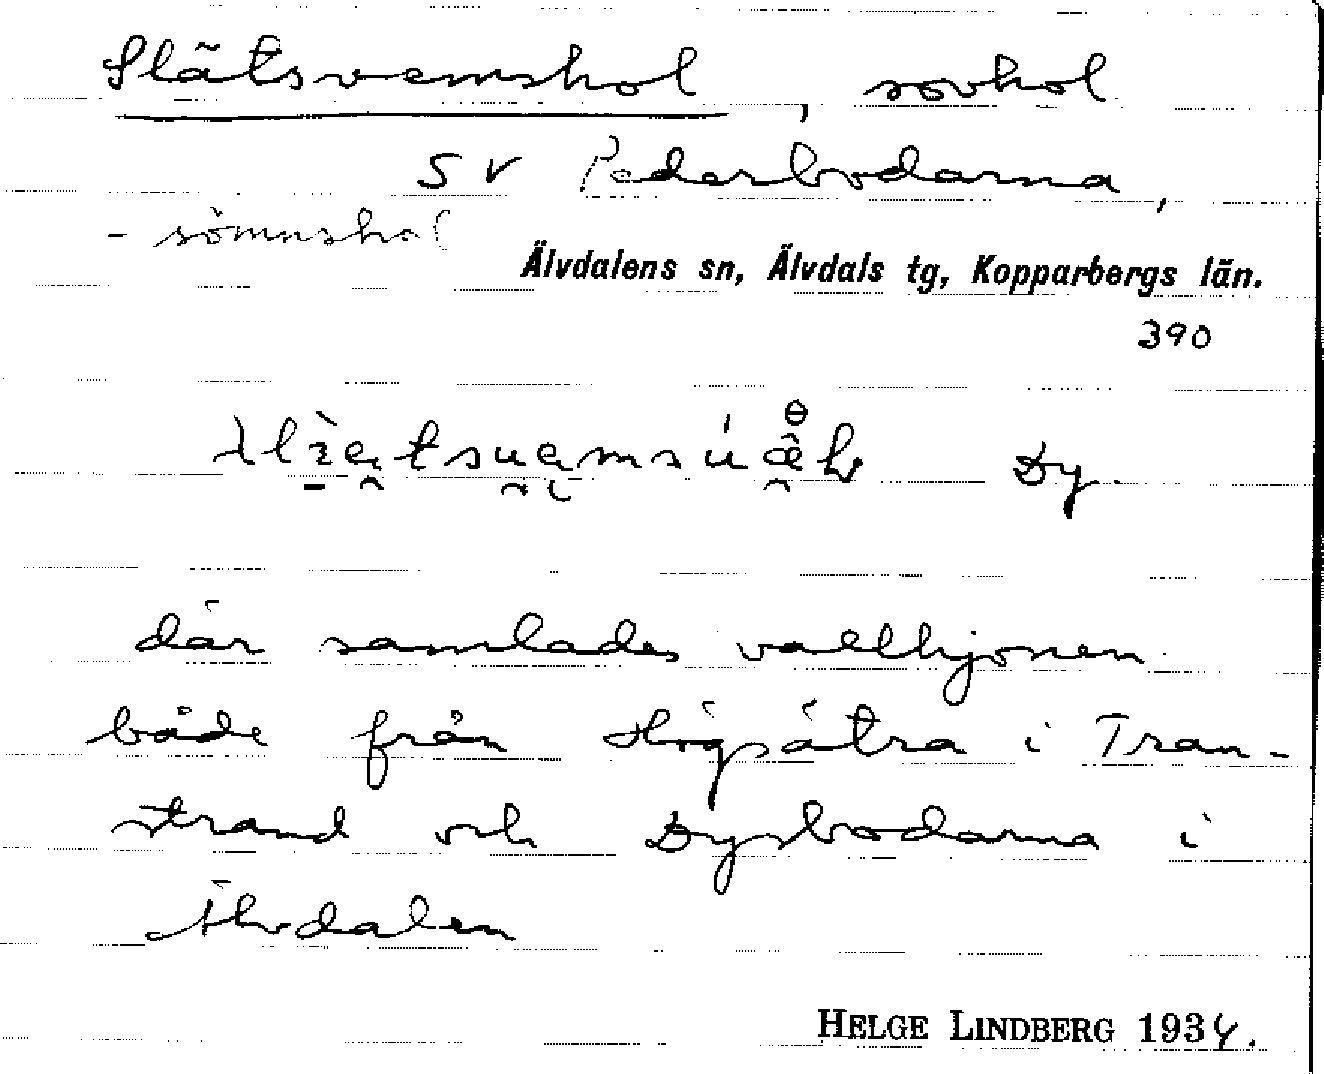 Slätsvemshol, sovhol
SV Pederbodarna,
- sömnshol
Älvdalens sn, Älvdals tg, Kopparbergs län.
390
Dy.
där samlades vallhjonen
både från Högsätra i Tran-
strand och Dysbodarna i
Älvdalen
HELGE LINDBERG 1934.